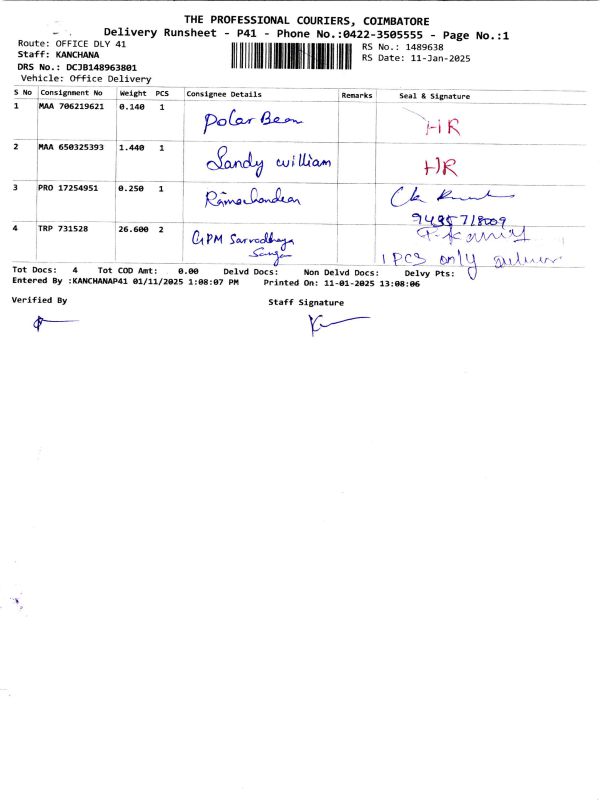 THE PROFESSIONAL COURIERS, COIMBATORE
Delivery Runsheet - P41 - Phone No.:0422-3505555 - Page No.:1
Route: OFFICE DLY 41
Staff: KANCHANA
DRS No.: DCJB148963801
Vehicle: Office Delivery
RS No.: 1489638
RS Date: 11-Jan-2025
S No Consignment No Weight PCS Consignee Details Remarks Seal & Signature
1 MAA 706219621 0.140 1 Polar Bean HR
2 MAA 650325393 1.440 1 Sandy william HR
3 PRO 17254951 0.250 1 Ramachandran
4 TRP 731528 26.600 2 GPM Sarvodhaya
Sanga 1 PCS only
Tot Docs: 4 Tot COD Amt: 0.00 Delvd Docs: Non Delvd Docs: Delvy Pts:
Entered By :KANCHANAP41 01/11/2025 1:08:07 PM Printed On: 11-01-2025 13:08:06
Verified By Staff Signature